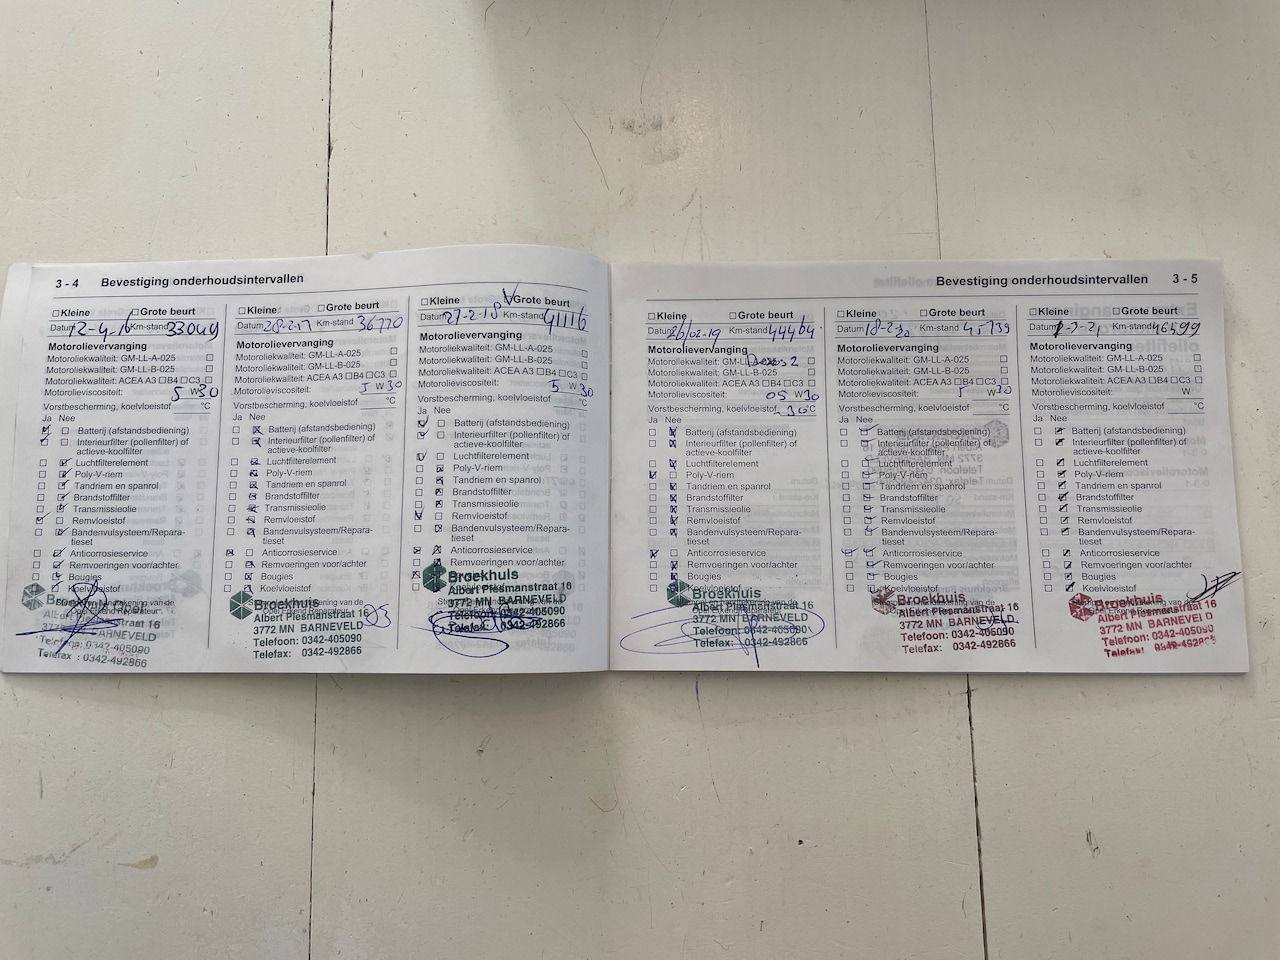 3 - 4 Bevestiging onderhoudsintervallen
☐Kleine ☐Grote beurt
Datum 12-4-16 Km-stand 33049
Motorolievervanging
Motoroliekwaliteit: GM-LL-A-025 ☐
Motoroliekwaliteit: GM-LL-B-025 ☐
Motoroliekwaliteit: ACEA A3 ☐B4 ☐C3 ☐
Motorolieviscositeit: 5 W30
Vorstbescherming, koelvloeistof °C
Ja Nee
Batterij (afstandsbediening)
Interieurfilter (pollenfilter) of
actieve-koolfilter
Luchtfilterelement
Poly-V-riem
Tandriem en spanrol
Brandstoffilter
Transmissieolie
Remvloeistof
Bandenvulsysteem/Repara-
tieset
Anticorrosieservice
Remvoeringen voor/achter
Bougies
Koelvloeistof
BARNEVELD
Telefoon: 0342-405090
Telefax : 0342-492866
☐Kleine ☐Grote beurt
Datum 28-2-17 Km-stand 36770
Motorolievervanging
Motoroliekwaliteit: GM-LL-A-025 ☐
Motoroliekwaliteit: GM-LL-B-025 ☐
Motoroliekwaliteit: ACEA A3 ☐B4 ☐C3 ☐
Motorolieviscositeit: 5 W30
Vorstbescherming, koelvloeistof °C
Ja Nee
Batterij (afstandsbediening)
Interieurfilter (pollenfilter) of
actieve-koolfilter
Luchtfilterelement
Poly-V-riem
Tandriem en spanrol
Brandstoffilter
Transmissieolie
Remvloeistof
Bandenvulsysteem/Repara-
tieset
Anticorrosieservice
Remvoeringen voor/achter
Bougies
Koelvloeistof
Broekhuis
Albert Plesmanstraat 16
3772 MN BARNEVELD
Telefoon: 0342-405090
Telefax: 0342-492866
☐Kleine ☐Grote beurt
Datum 27-2-18 Km-stand 41116
Motorolievervanging
Motoroliekwaliteit: GM-LL-A-025 ☐
Motoroliekwaliteit: GM-LL-B-025 ☐
Motoroliekwaliteit: ACEA A3 ☐B4 ☐C3 ☐
Motorolieviscositeit: 5 W30
Vorstbescherming, koelvloeistof °C
Ja Nee
Batterij (afstandsbediening)
Interieurfilter (pollenfilter) of
actieve-koolfilter
Luchtfilterelement
Poly-V-riem
Tandriem en spanrol
Brandstoffilter
Transmissieolie
Remvloeistof
Bandenvulsysteem/Repara-
tieset
Anticorrosieservice
Remvoeringen voor/achter
Broekhuis
Albert Plesmanstraat 16
3772 MN BARNEVELD
Telefoon: 0342-405090
Telefax: 0342-492866
Bevestiging onderhoudsintervallen 3 - 5
☐Kleine ☐Grote beurt
Datum 26/02-19 Km-stand 44464
Motorolievervanging
Motoroliekwaliteit: GM-LL Dexos 2 ☐
Motoroliekwaliteit: GM-LL-B-025 ☐
Motoroliekwaliteit: ACEA A3 ☐B4 ☐C3 ☐
Motorolieviscositeit: 05 W30
Vorstbescherming, koelvloeistof -30°C
Ja Nee
Batterij (afstandsbediening)
Interieurfilter (pollenfilter) of
actieve-koolfilter
Luchtfilterelement
Poly-V-riem
Tandriem en spanrol
Brandstoffilter
Transmissieolie
Remvloeistof
Bandenvulsysteem/Repara-
tieset
Anticorrosieservice
Remvoeringen voor/achter
Bougies
Koelvloeistof
Broekhuis
Albert Plesmanstraat 16
3772 MN BARNEVELD
Telefoon: 0342-405090
Telefax: 0342-492866
☐Kleine ☐Grote beurt
Datum 18-2-20 Km-stand 45739
Motorolievervanging
Motoroliekwaliteit: GM-LL-A-025 ☐
Motoroliekwaliteit: GM-LL-B-025 ☐
Motoroliekwaliteit: ACEA A3 ☐B4 ☐C3 ☐
Motorolieviscositeit: 5 W30
Vorstbescherming, koelvloeistof °C
Ja Nee
Batterij (afstandsbediening)
Interieurfilter (pollenfilter) of
actieve-koolfilter
Luchtfilterelement
Poly-V-riem
Tandriem en spanrol
Brandstoffilter
Transmissieolie
Remvloeistof
Bandenvulsysteem/Repara-
tieset
Anticorrosieservice
Remvoeringen voor/achter
Bougies
Koelvloeistof
Broekhuis
Albert Plesmanstraat 16
3772 MN BARNEVELD
Telefoon: 0342-405090
Telefax: 0342-492866
☐Kleine ☐Grote beurt
Datum Km-stand 46599
Motorolievervanging
Motoroliekwaliteit: GM-LL-A-025 ☐
Motoroliekwaliteit: GM-LL-B-025 ☐
Motoroliekwaliteit: ACEA A3 ☐B4 ☐C3 ☐
Motorolieviscositeit: W
Vorstbescherming, koelvloeistof °C
Ja Nee
Batterij (afstandsbediening)
Interieurfilter (pollenfilter) of
actieve-koolfilter
Luchtfilterelement
Poly-V-riem
Tandriem en spanrol
Brandstoffilter
Transmissieolie
Remvloeistof
Bandenvulsysteem/Repara-
tieset
Anticorrosieservice
Remvoeringen voor/achter
Bougies
Koelvloeistof
Broekhuis
Albert Plesmanstraat 16
3772 MN BARNEVELD
Telefoon: 0342-405090
Telefax: 0342-492866